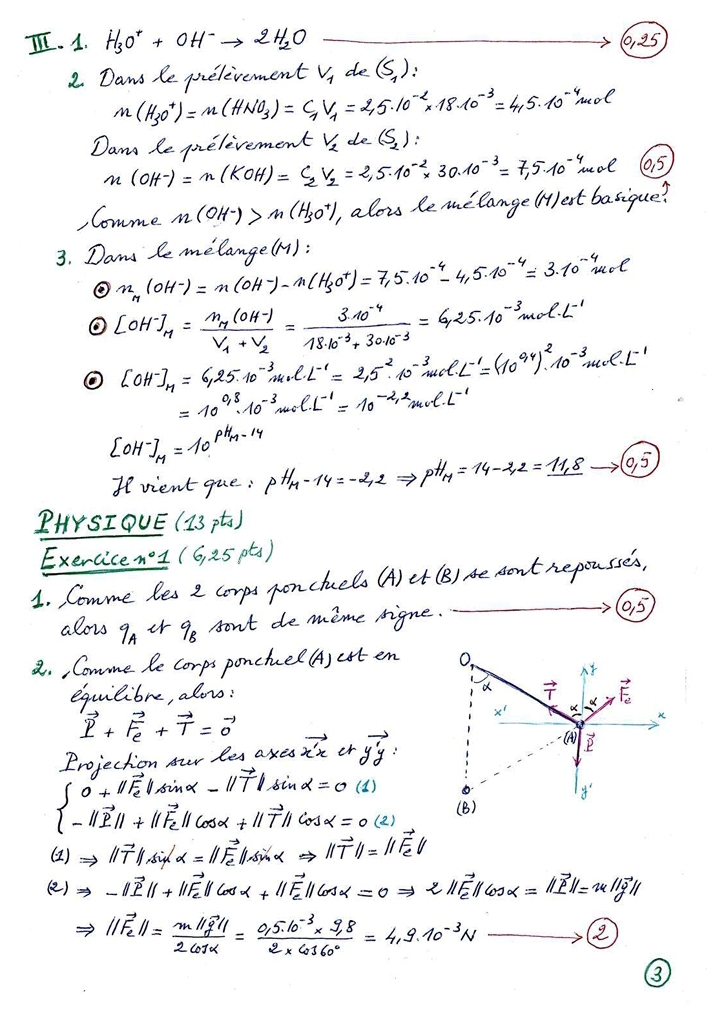 III - 1. H₃O⁺ + OH⁻ → 2H₂O → 0,25
2. Dans le prélèvement V₁ de (S₁) :
n(H₃O⁺) = n(HNO₃) = C₁V₁ = 2,5.10⁻² × 18.10⁻³ = 4,5.10⁻⁴ mol
Dans le prélèvement V₂ de (S₂) :
n(OH⁻) = n(KOH) = C₂V₂ = 2,5.10⁻² × 30.10⁻³ = 7,5.10⁻⁴ mol 0,5
Comme n(OH⁻) > n(H₃O⁺), alors le mélange (M) est basique.
3. Dans le mélange (M) :
n_M(OH⁻) = n(OH⁻) - n(H₃O⁺) = 7,5.10⁻⁴ - 4,5.10⁻⁴ = 3.10⁻⁴ mol
[OH⁻]_M = n_M(OH⁻) / (V₁ + V₂) = 3.10⁻⁴ / (18.10⁻³ + 30.10⁻³) = 6,25.10⁻³ mol.L⁻¹
[OH⁻]_M = 6,25.10⁻³ mol.L⁻¹ = 2,5².10⁻³ mol.L⁻¹ = (10^0,4)².10⁻³ mol.L⁻¹
= 10^0,8.10⁻³ mol.L⁻¹ = 10^-2,2 mol.L⁻¹
[OH⁻]_M = 10^(pH_M-14)
Il vient que : pH_M - 14 = -2,2 ⇒ pH_M = 14 - 2,2 = 11,8 → 0,5
PHYSIQUE (13 pts)
Exercice n°1 (6,25 pts)
1. Comme les 2 corps ponctuels (A) et (B) se sont repoussés,
alors q_A et q_B sont de même signe. → 0,5
2. Comme le corps ponctuel (A) est en
équilibre, alors :
P⃗ + F⃗e + T⃗ = 0⃗
Projection sur les axes x'x et y'y :
0 + ||F⃗e|| sin α - ||T⃗|| sin α = 0 (1)
-||P⃗|| + ||F⃗e|| cos α + ||T⃗|| cos α = 0 (2)
O
α
T⃗
α
α
y
F⃗e
x'
x
(A)
P⃗
y'
(B)
(1) ⇒ ||T⃗|| sin α = ||F⃗e|| sin α ⇒ ||T⃗|| = ||F⃗e||
(2) ⇒ -||P⃗|| + ||F⃗e|| cos α + ||F⃗e|| cos α = 0 ⇒ 2||F⃗e|| cos α = ||P⃗|| = m||g⃗||
⇒ ||F⃗e|| = m||g⃗|| / 2 cos α = 0,5.10⁻³ × 9,8 / 2 × cos 60° = 4,9.10⁻³ N → 2
3